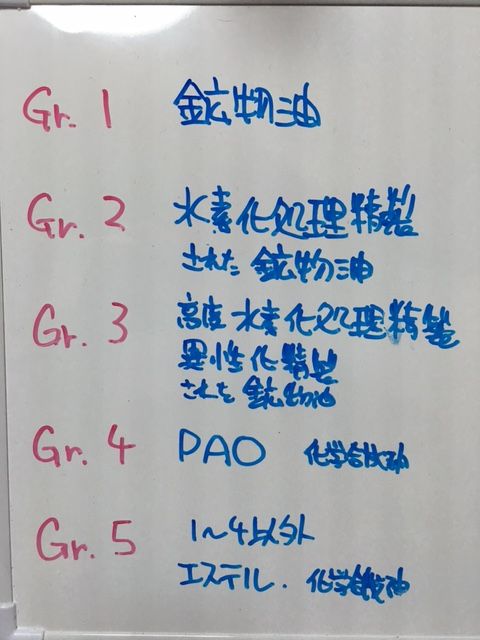 Gr. 1 鉱物油
Gr. 2 水素化処理精製
された 鉱物油
Gr. 3 高度水素化処理精製
異性化精製
された 鉱物油
Gr. 4 PAO 化学合成油
Gr. 5 1〜4以外
エステル. 化学合成油